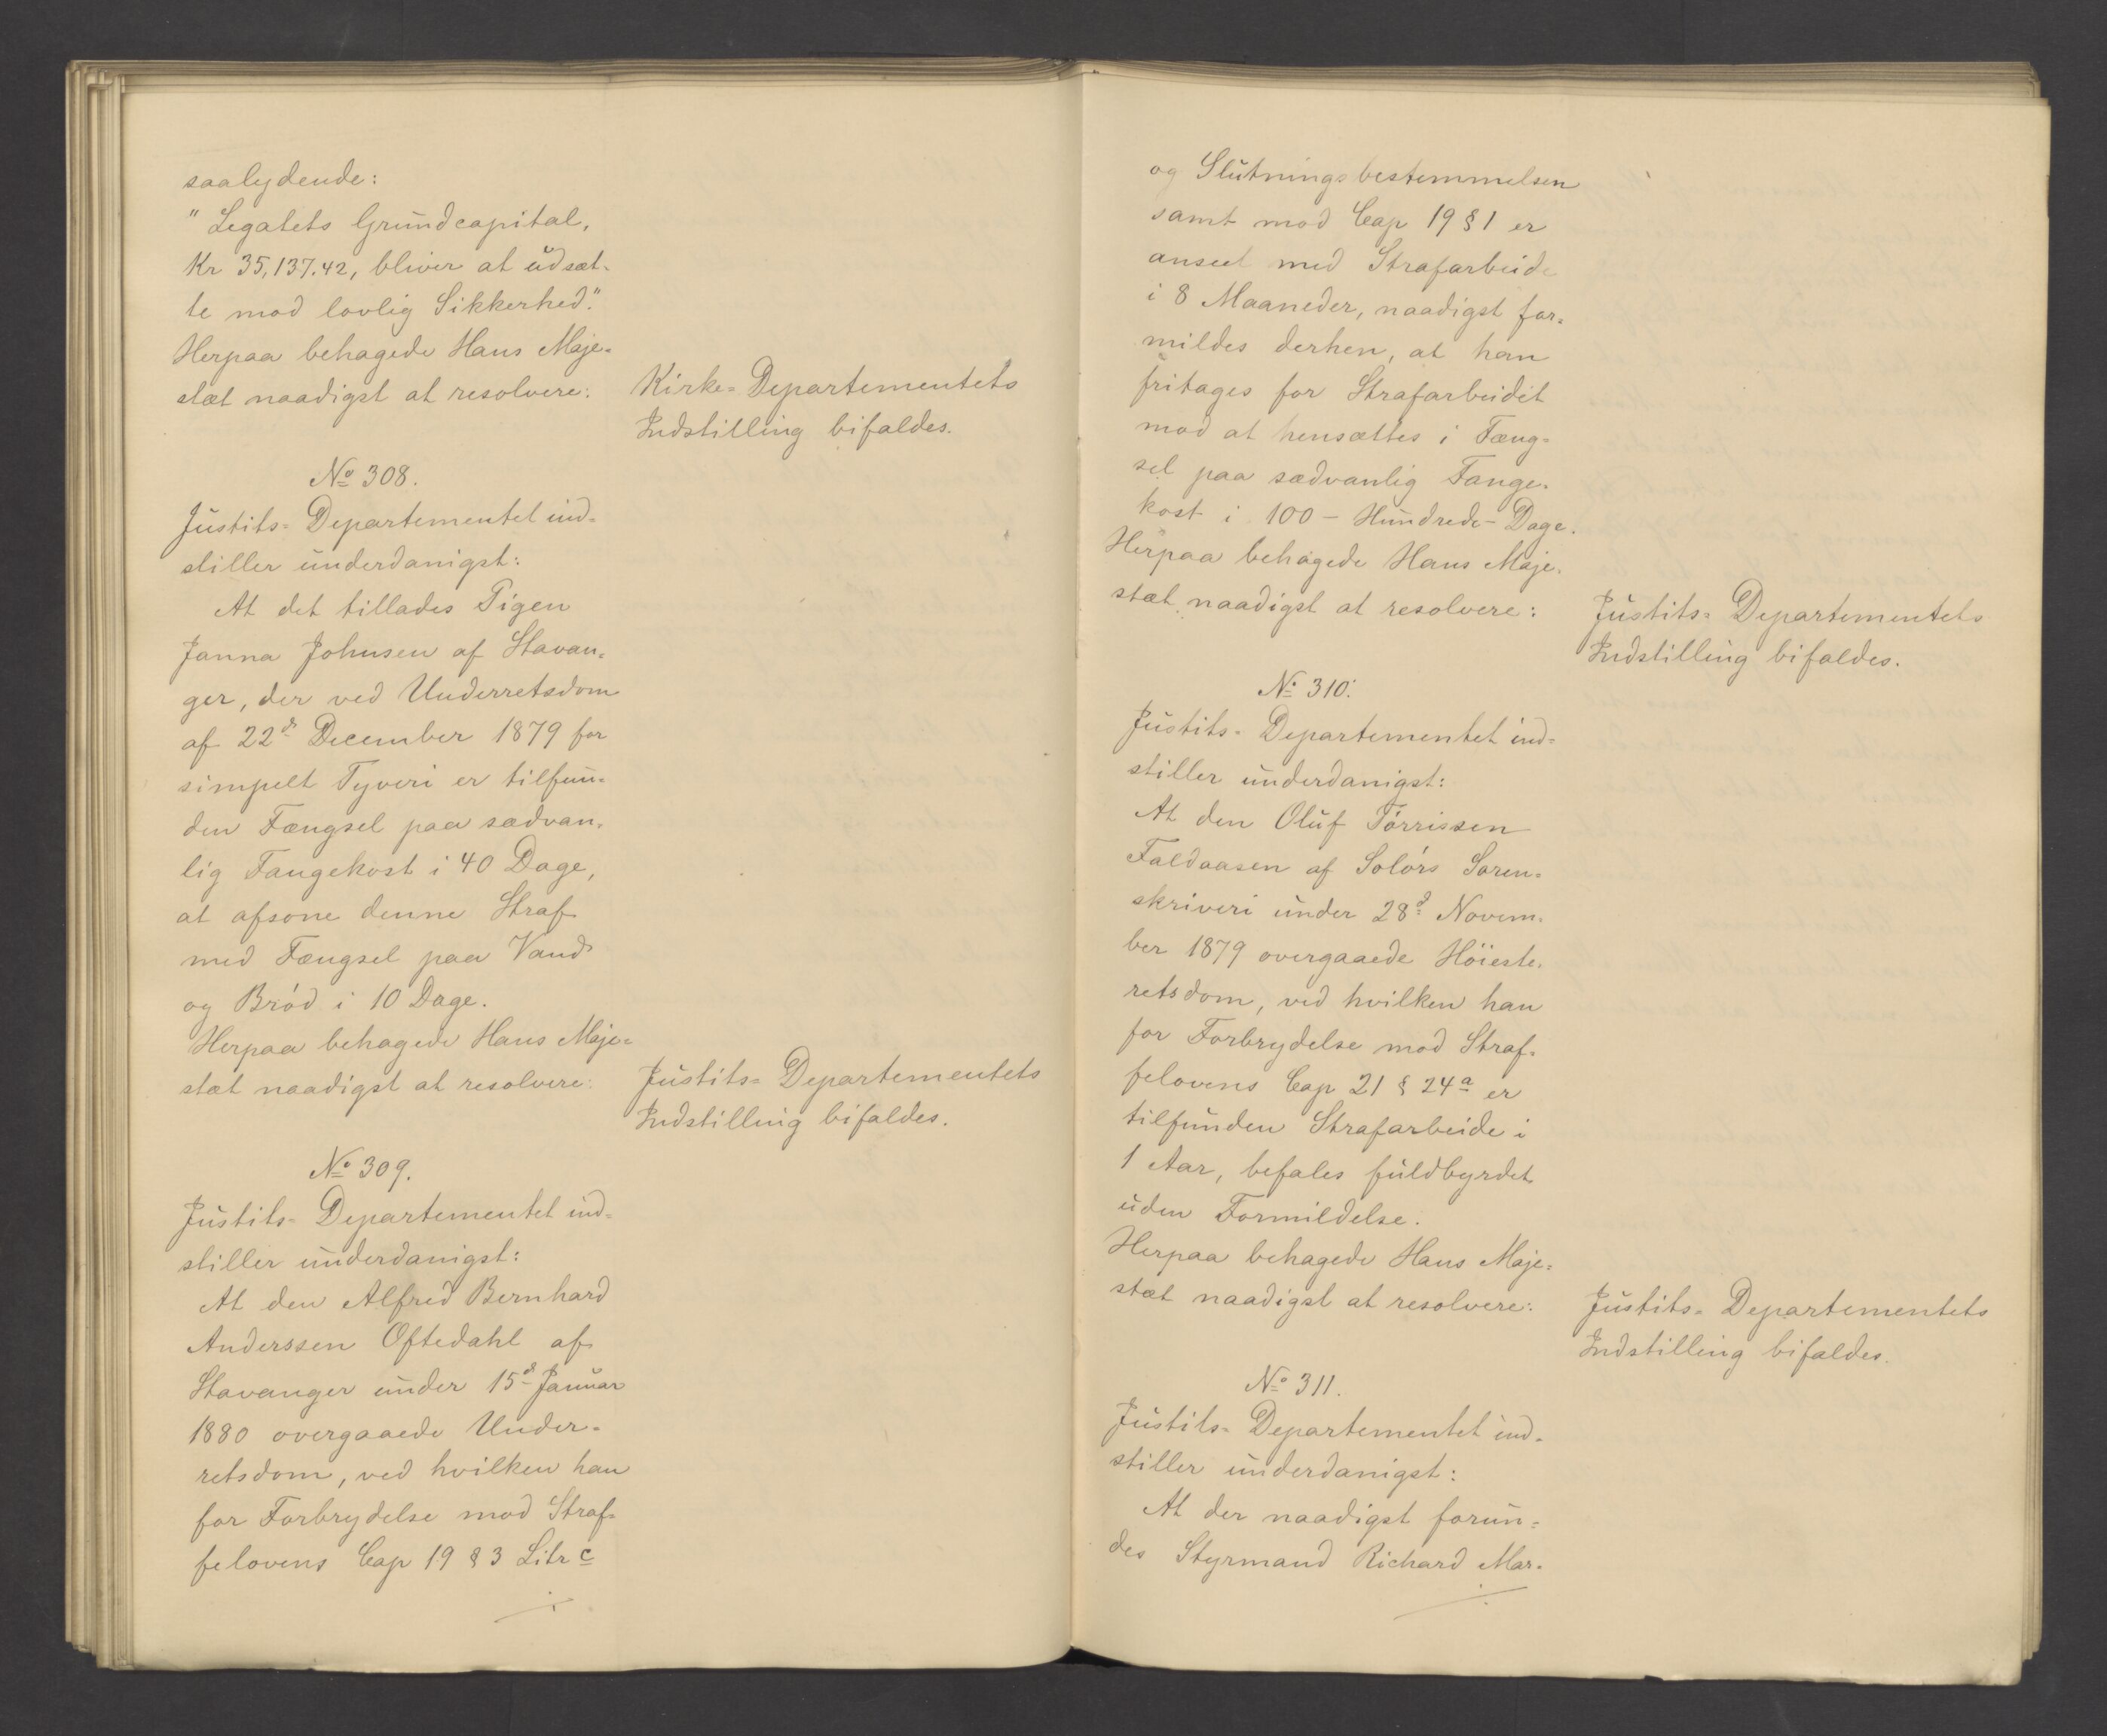 saalydende:
"Legatets Grundcapital,
Kr 35,137.42, bliver at udsæt-
te mod lovlig Sikkerhed."
Herpaa behagede Hans Maje-
stæt naadigst at resolvere:
Kirke-Departementets
Indstilling bifaldes.
No 308.
Justits-Departementet ind-
stiller underdanigst:
At det tillades Pigen
Janna Johnsen af Stavan-
ger, der ved Underretsdom
af 22de December 1879 for
simpelt Tyveri er tilfun-
den Fængsel paa sædvan-
lig Fangekost i 40 Dage,
at afsone denne Straf
med Fængsel paa Vand
og Brød i 10 Dage.
Herpaa behagede Hans Maje-
stæt naadigst at resolvere:
Justits-Departementets
Indstilling bifaldes.
No 309.
Justits-Departementet ind-
stiller underdanigst:
At den Alfred Bernhard
Anderssen Oftedahl af
Stavanger under 15d Januar
1880 overgaaede Under-
retsdom, ved hvilken han
for Forbrydelse mod Straf-
felovens Cap 19 § 3 Litr c
./.
og Slutningsbestemmelsen
samt mod Cap 19 § 1 er
anseet med Strafarbeide
i 8 Maaneder, naadigst for-
mildes derhen, at han
fritages for Strafarbeidet
mod at hensættes i Fæng-
sel paa sædvanlig Fange-
kost i 100 - Hundrede - Dage.
Herpaa behagede Hans Maje-
stæt naadigst at resolvere:
Justits-Departementets
Indstilling bifaldes.
No 310.
Justits-Departementet ind-
stiller underdanigst:
At den Oluf Tørrissen
Faldaasen af Solørs Soren-
skriveri under 28d Novem-
ber 1879 overgaaede Høieste-
retsdom, ved hvilken han
for Forbrydelse mod Straf-
felovens Cap 21 § 24a er
tilfunden Strafarbeide i
1 Aar, befales fuldbyrdet
uden Formildelse.
Herpaa behagede Hans Maje-
stæt naadigst at resolvere:
Justits-Departementets
Indstilling bifaldes.
No 311.
Justits-Departementet ind-
stiller underdanigst:
At der naadigst forun-
des Styrmand Richard Mar-
./.